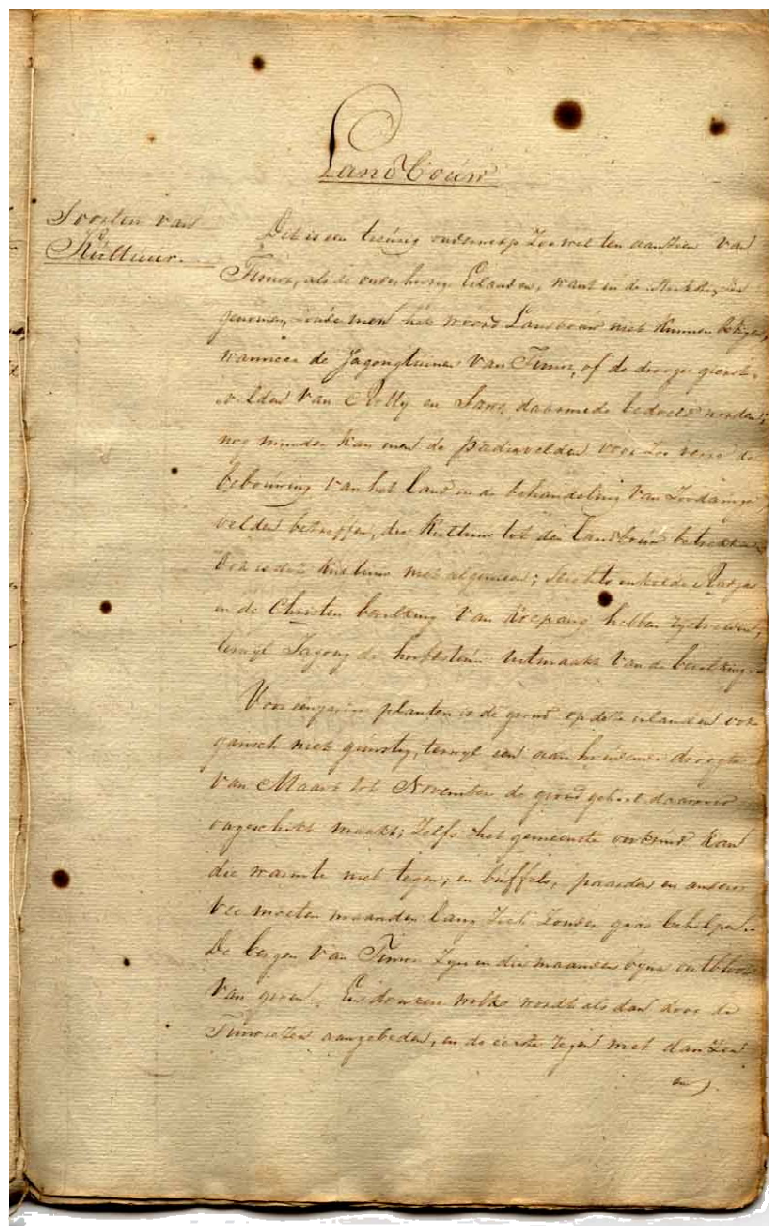 Landbouw
Soorten van
Kultuur.
Dit is een treurig onderwerp zoo wel ten aanzien van
Timor, als de onderhoorige Eilanden, want in de
genomen, zoude men het woord Landbouw niet kunnen
wanneer de Jagongtuinen van Timor, of de drooge
velden van Rotty en Savo, daarmede bedoeld worden;
nog minder kan men de padievelden voor zoo verre de
bebouwing van het land en de behandeling van zoodanige
velden betreffen, die Kultuur tot den Landbouw betrekken
Ook is deze Kultuur niet algemeen; slechts enkelde Radjas
en de Christen bevolking van Koepang hebben
terwijl Jagong de hoofdsteun uitmaakt van de bevolking
Voor planten is de grond op deze eilanden ook
gansch niet gunstig, terwijl een aan houdende droogte
van Maart tot November de grond geheel daarvoor
ongeschikt maakt; zelfs het gemeenste onkruid kan
die warmte niet tegen, en buffels, paarden en ander
vee moeten maanden lang zich zonder gras behelpen.
De bergen van Timor zijn in die maanden bijna ontbloot
van groen. Eindoween wolke wordt als dan door de
Timoreezen aangebeden, en de eerste regen met dan
en)